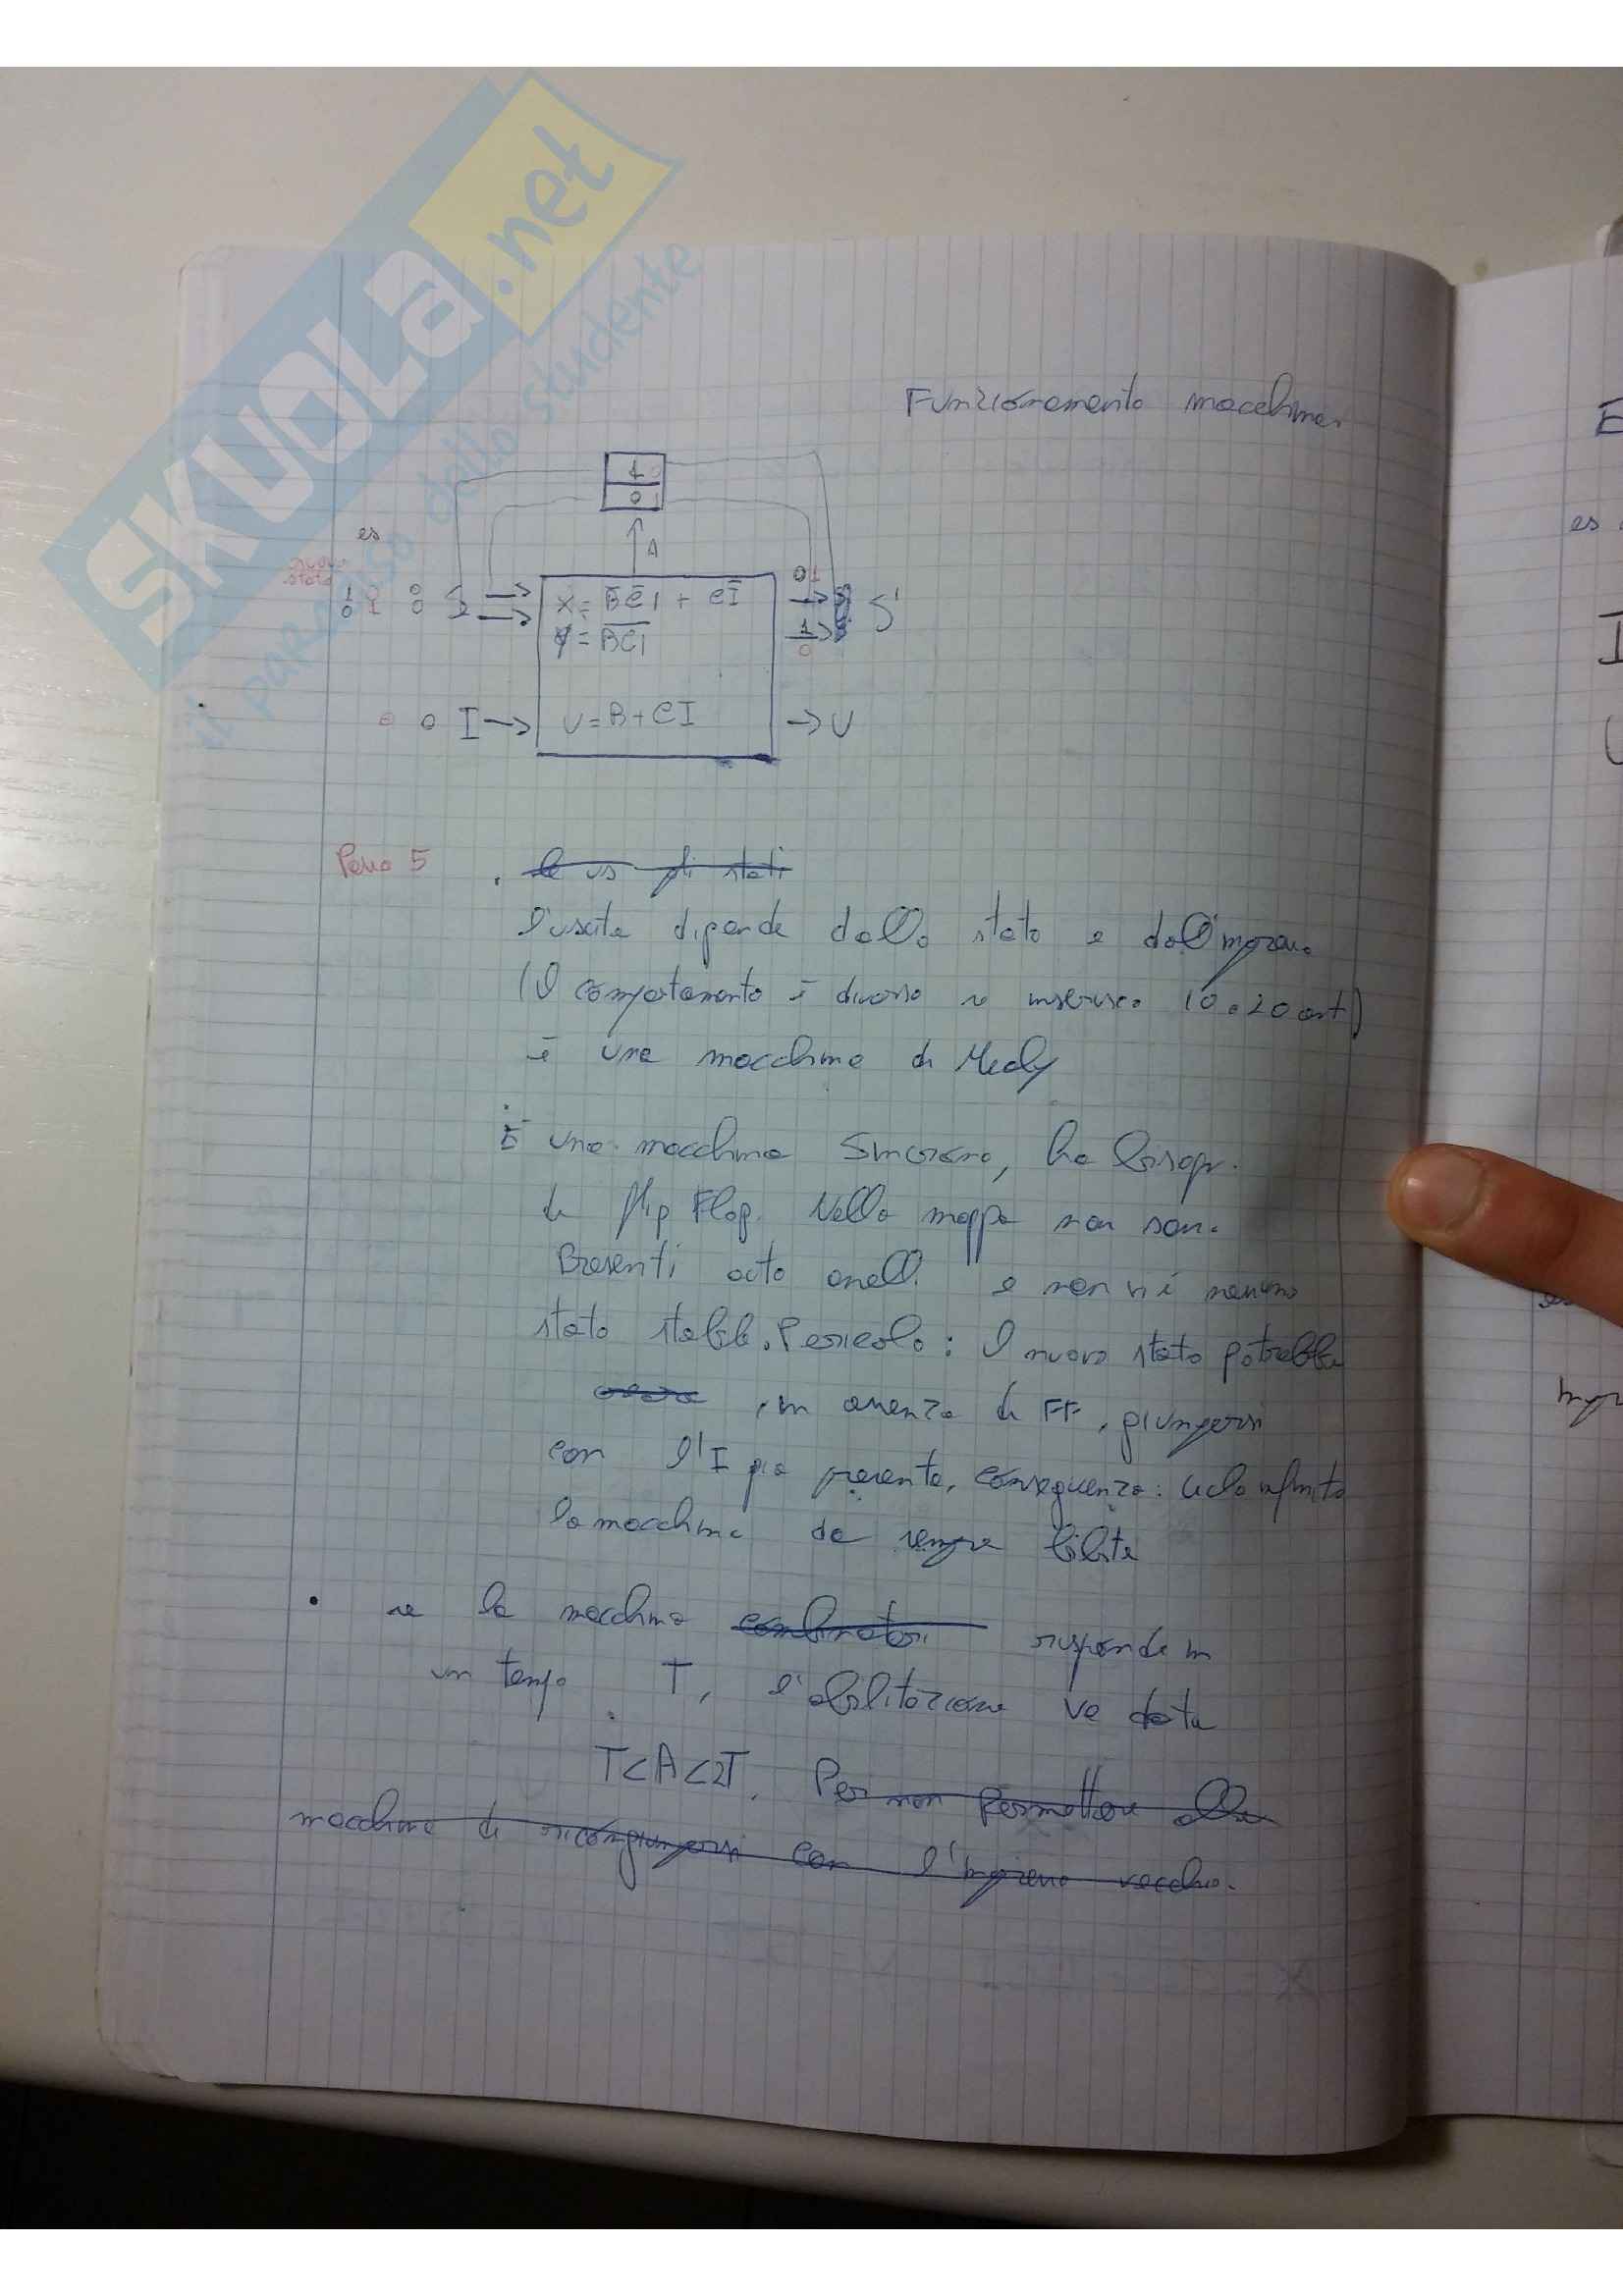 SKUOLA.net
il paradiso dello studente
Funzionamento macchina
1 0
0 1
es
A
nuovo
stato
1 0 0 S
0 1 0
X = B̅C̅I + CI̅
Y = B̅C̅I̅
0 1
1
0
S'
0 0 I → U = B + CI → U
Passo 5
. Se us gli stati
L'uscita dipende dallo stato e dall'ingresso
(Il comportamento è diverso se inserisco 10 o 20 cent)
è una macchina di Mealy
È una macchina sincrona, ha bisogn.
di flip Flop. Nella mappa non sono
Presenti auto anelli e non vi è nessuno
stato stabile. Pericolo: Il nuovo stato potrebbe
, in assenza di FF, giungersi
con l'I già presente, conseguenza: ciclo infinito
la macchina da sempre bibite
• se la macchina combinatori risponde in
un tempo T, l'abilitazione va data
T<A<2T. Per non permettere alla
macchina di ricongiungersi con l'ingresso vecchio.
E
es
I
U
es
ingr